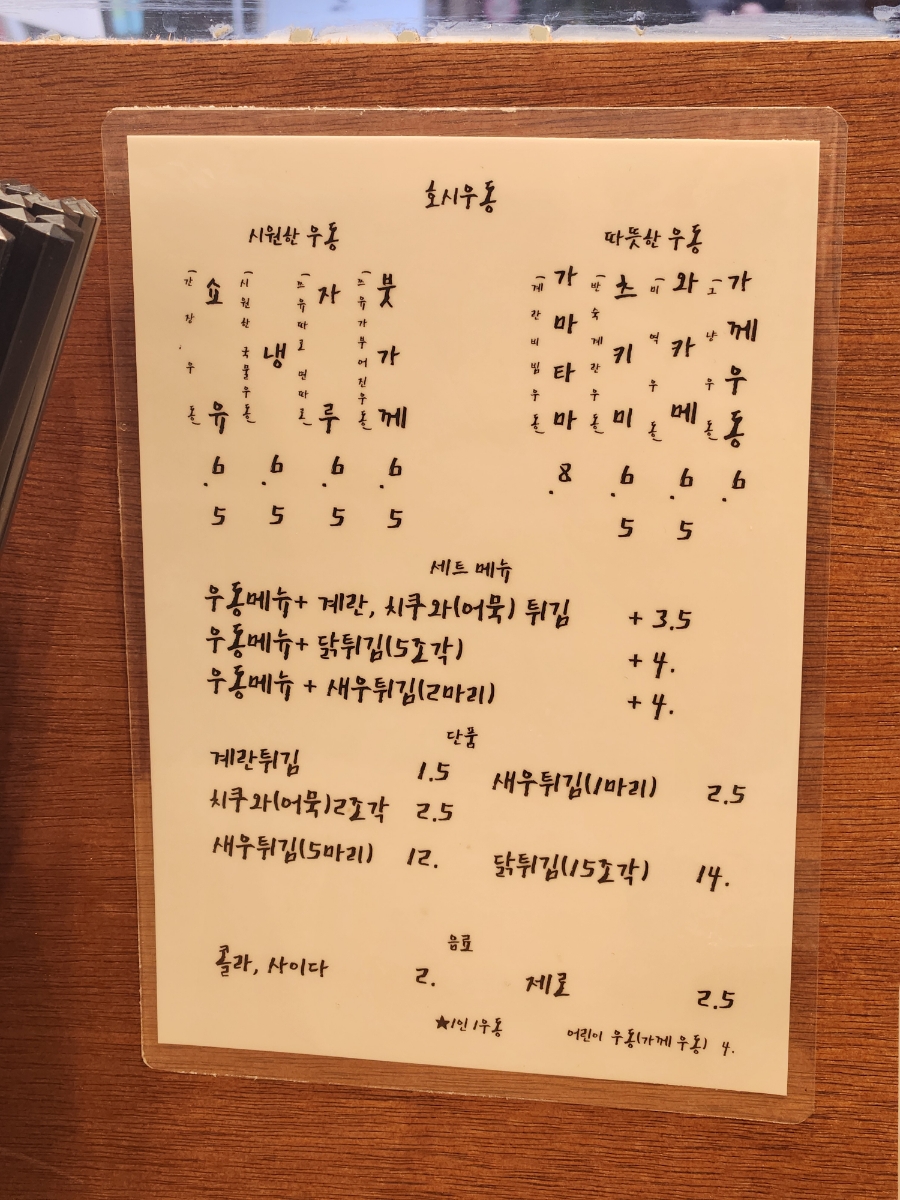 호시우동
시원한 우동
쇼유
(간장우동)
6.5
냉
(시원한 국물우동)
6.5
자루
(쯔유따로 면따로)
6.5
붓가께
(쯔유가부어진우동)
6.5
따뜻한 우동
가마타마
(계란비빔우동)
8.
츠키미
(반숙계란우동)
6.5
와카메
(미역우동)
6.5
가께우동
(그냥우동)
6.
세트 메뉴
우동메뉴+ 계란, 치쿠와(어묵) 튀김 + 3.5
우동메뉴+ 닭튀김(5조각) + 4.
우동메뉴 + 새우튀김(2마리) + 4.
단품
계란튀김 1.5
새우튀김(1마리) 2.5
치쿠와(어묵)2조각 2.5
새우튀김(5마리) 12.
닭튀김(15조각) 14.
음료
콜라, 사이다 2.
제로 2.5
★1인 1우동
어린이 우동(가께 우동) 4.